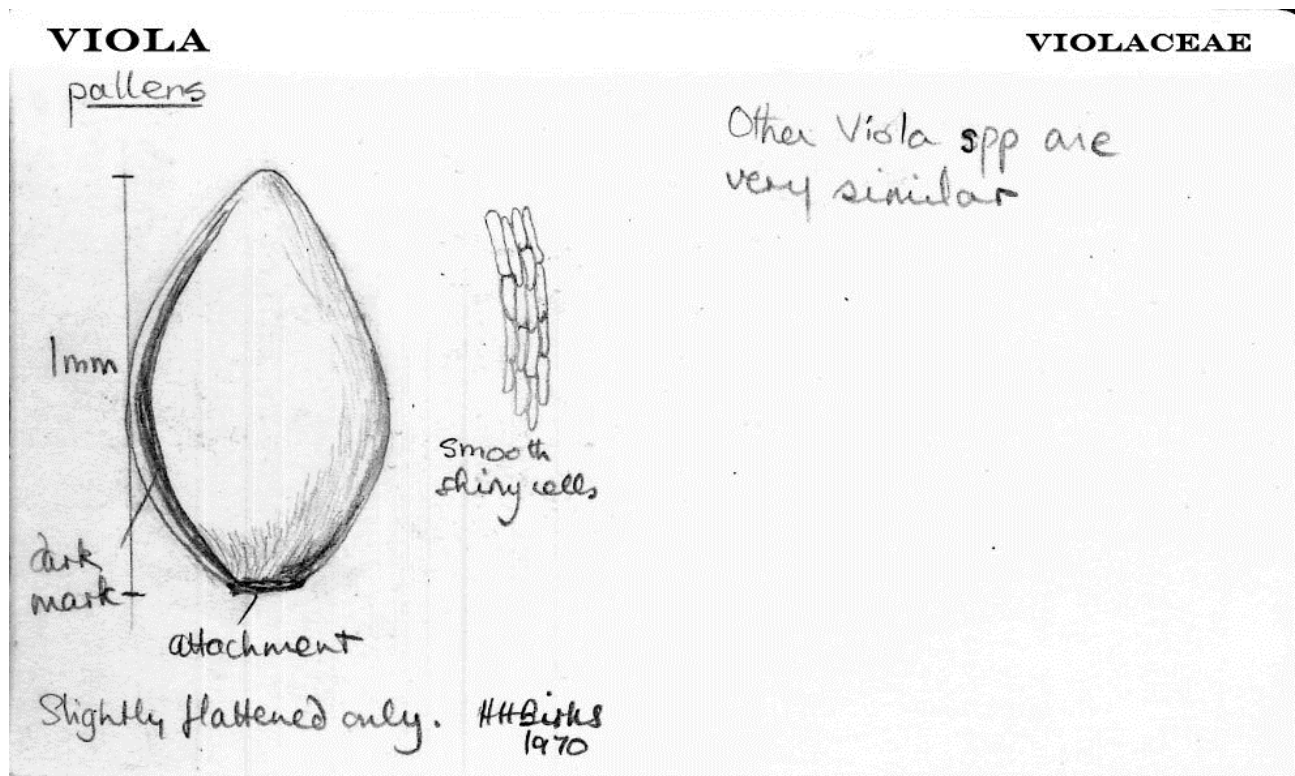 VIOLA
VIOLACEAE
pallens
Other Viola spp are
very similar
1mm
smooth
shiny cells
dark
mark
attachment
Slightly flattened only.
HHBirks
1970